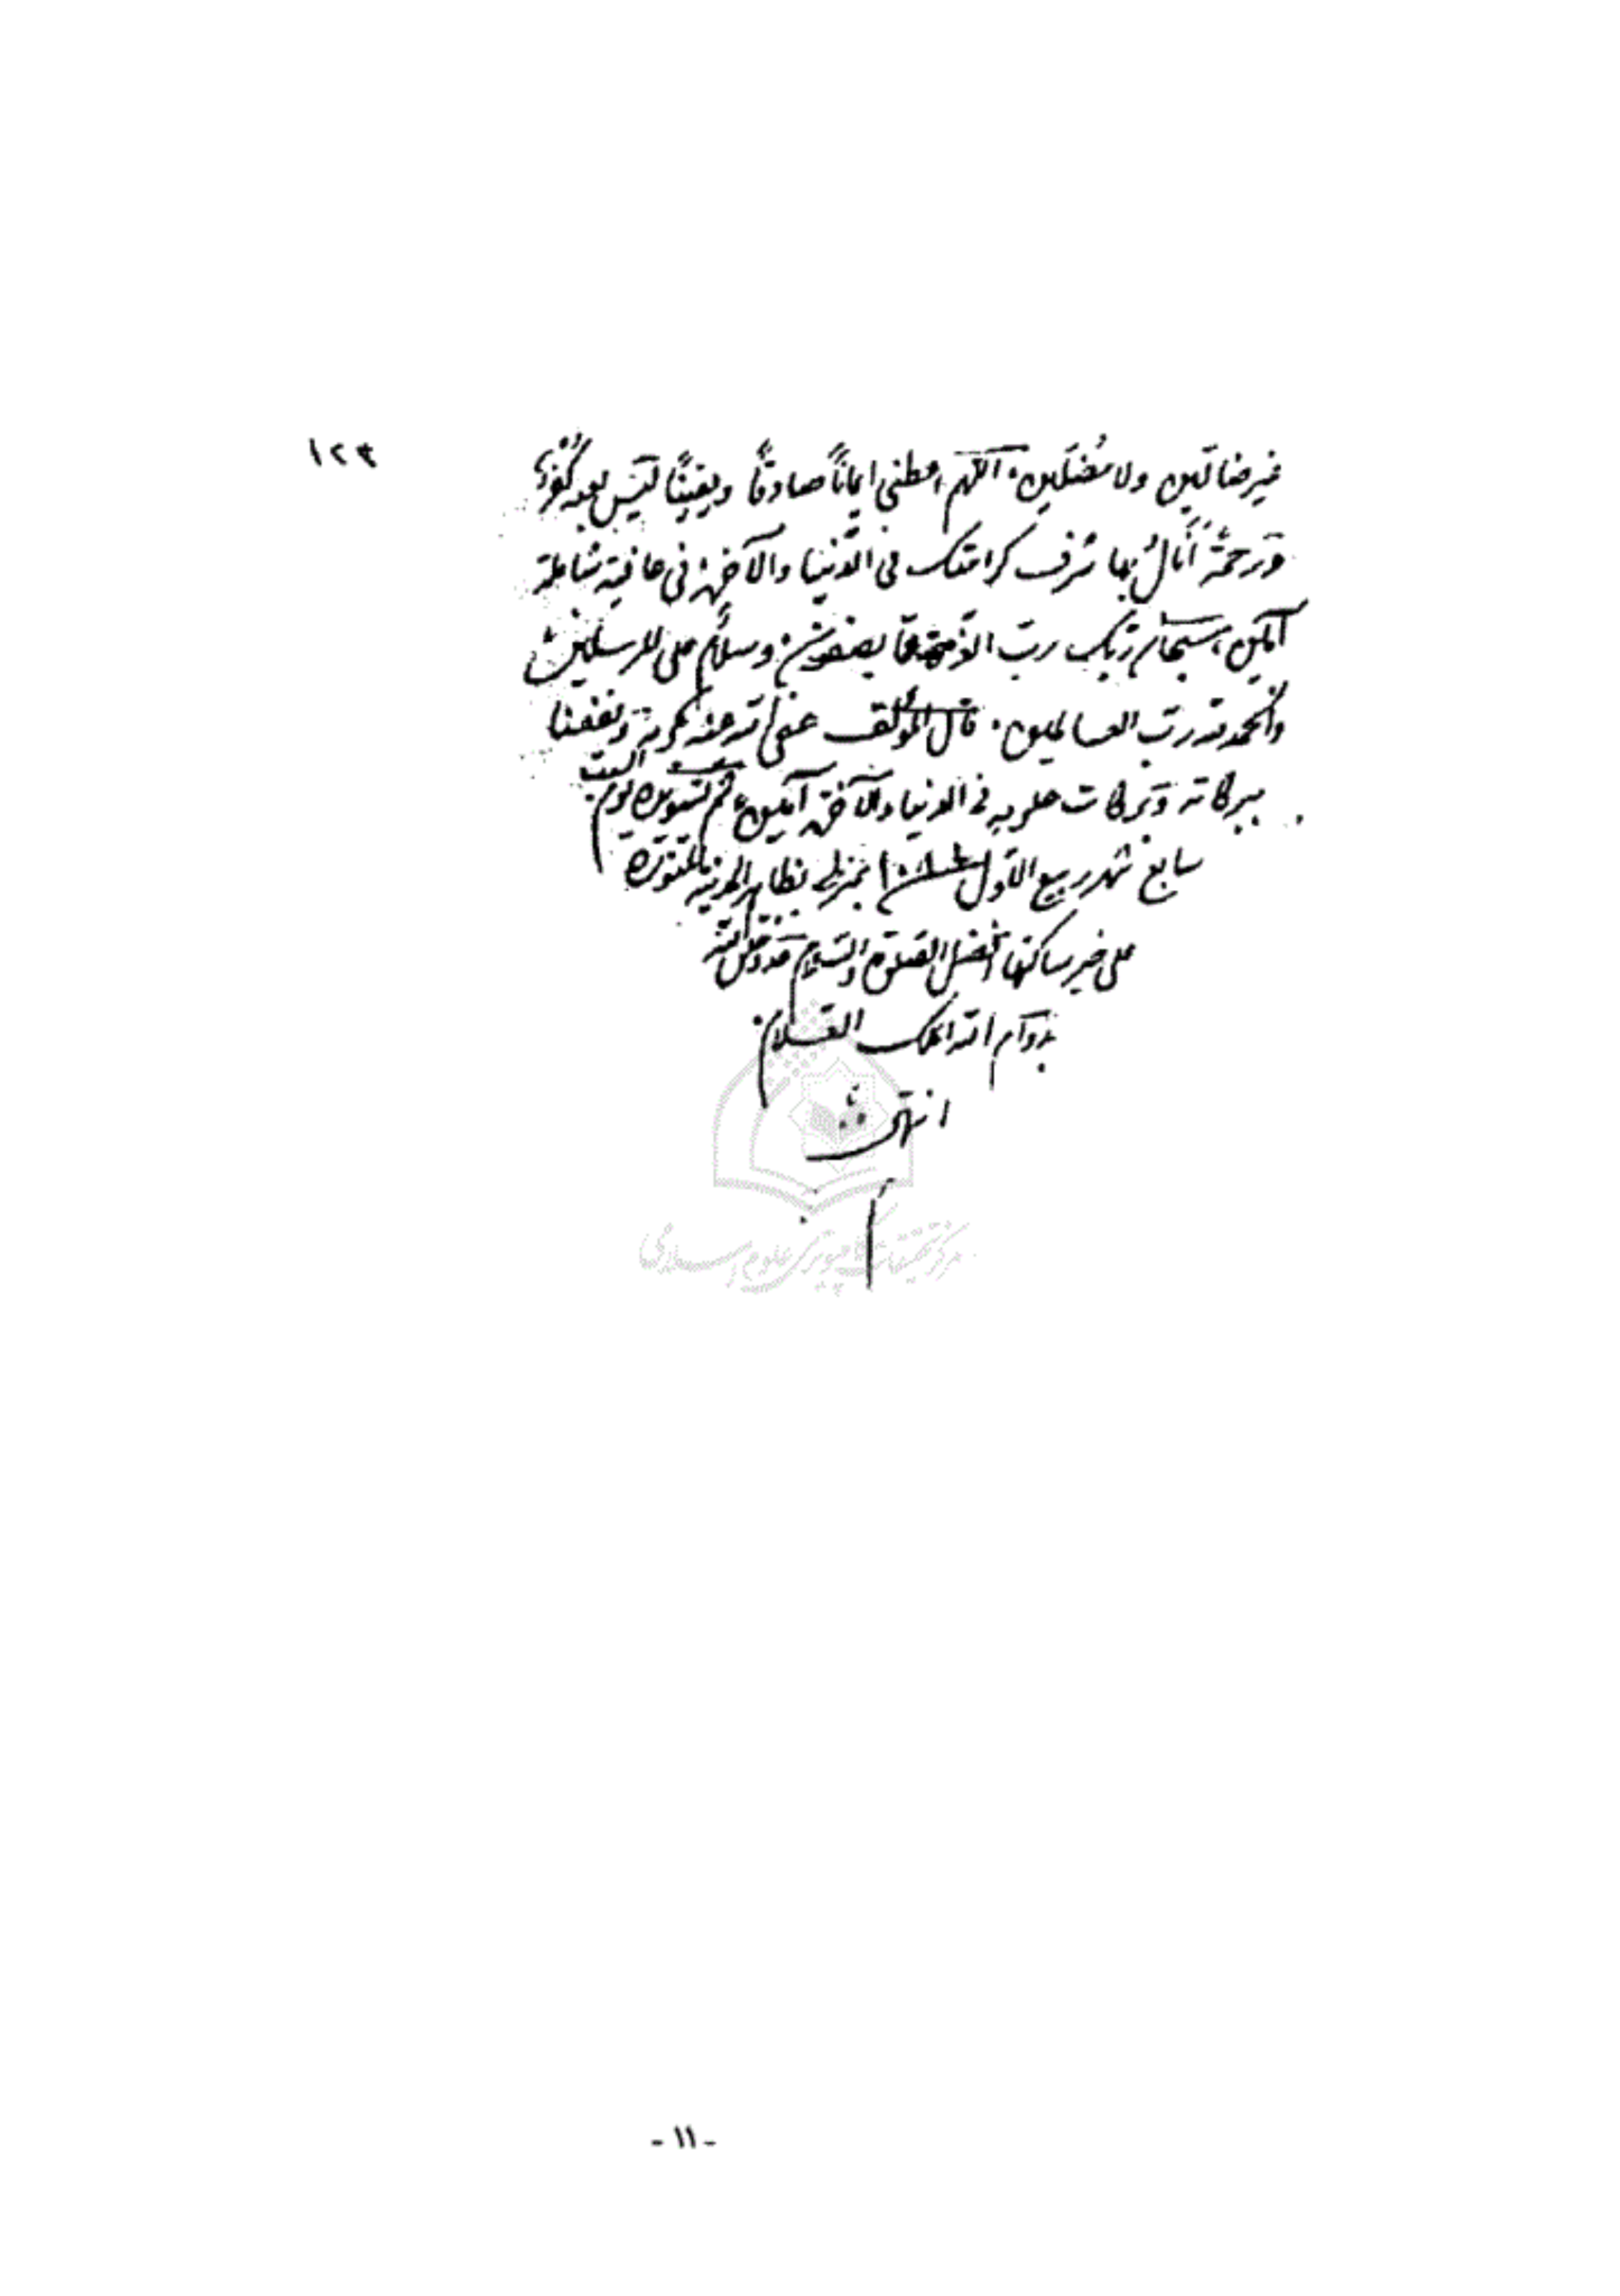 ١٢٤
غير ضالّين ولا مُضلّين، اَللّهم اعطني ايماناً صادقاً ويقيناً ليَس بعده كُفرٌ
وَرحمةً أنالُ بها شرف كرامتك في الدّنيا والآخرة في عافية شاملة
آمين، سبحان ربّك ربّ العزّة عمّا يصفون، وسلامٌ على المرسلين
والحمد لله ربّ العالمين، قال المؤلف عفى الله عنه بكرمه ونفعنا
ببركاته وَبركات علومه في الدنيا والآخرة آمين، ثم تسويده يوم السبت
سابع شهر ربيع الاوّل بمنزلي بظاهر المدينة المنوّرة
على خير ساكنها أفضل الصلوة والسّلام
بدوام الله الملك العلام
انتهى
مركز تحقيقات كامپيوترى علوم اسلامى
- ١١ -